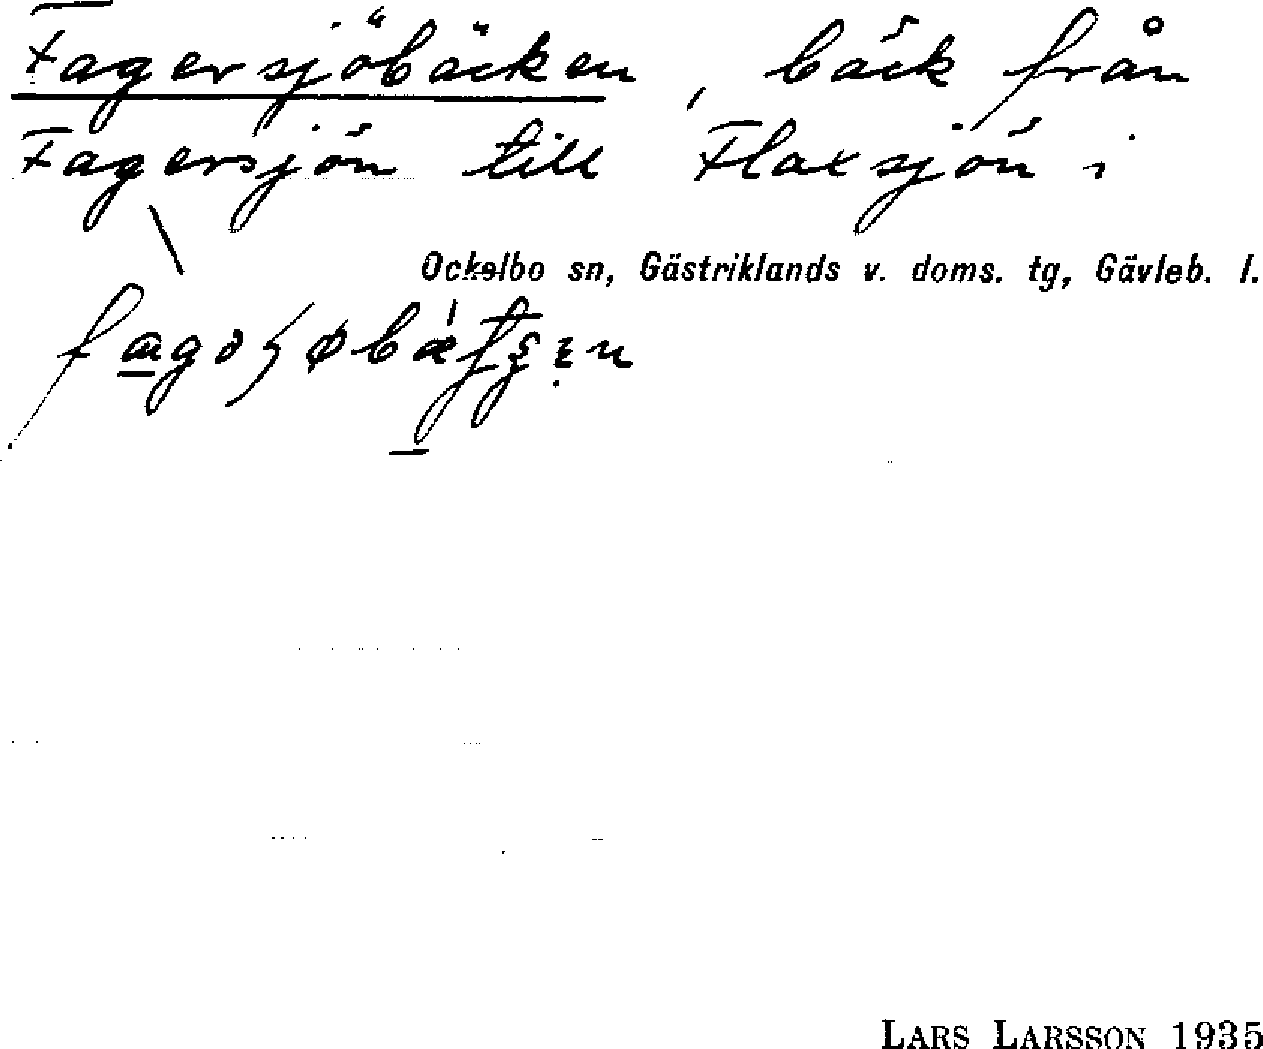 Fagersjöbäcken, bäck från
Fagersjön till Flaxsjön i
Ockelbo sn, Gästriklands v. doms. tg, Gävleb. l.
LARS LARSSON 1935